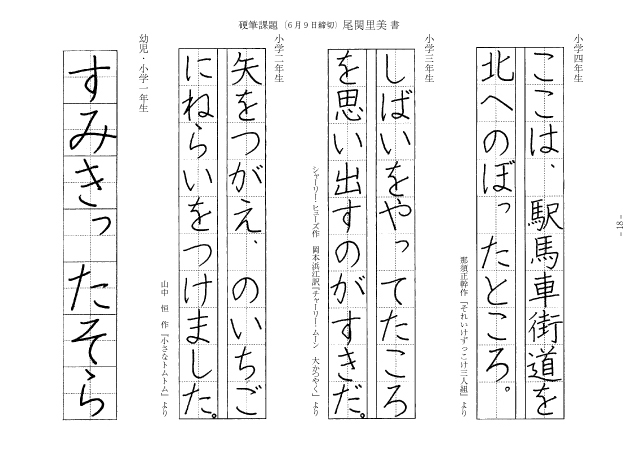 硬筆課題（６月９日締切）尾関里美 書
小学四年生
ここは、駅馬車街道を
北へのぼったところ。
那須正幹作『それいけずっこけ三人組』より
小学三年生
しばいをやってたころ
を思い出すのがすきだ。
シャーリー・ヒューズ作　岡本浜江訳『チャーリー・ムーン　大かつやく』より
小学二年生
矢をつがえ、のいちご
にねらいをつけました。
山中　恒　作『小さなトムトム』より
幼児・小学一年生
すみきったそら
- 18 -